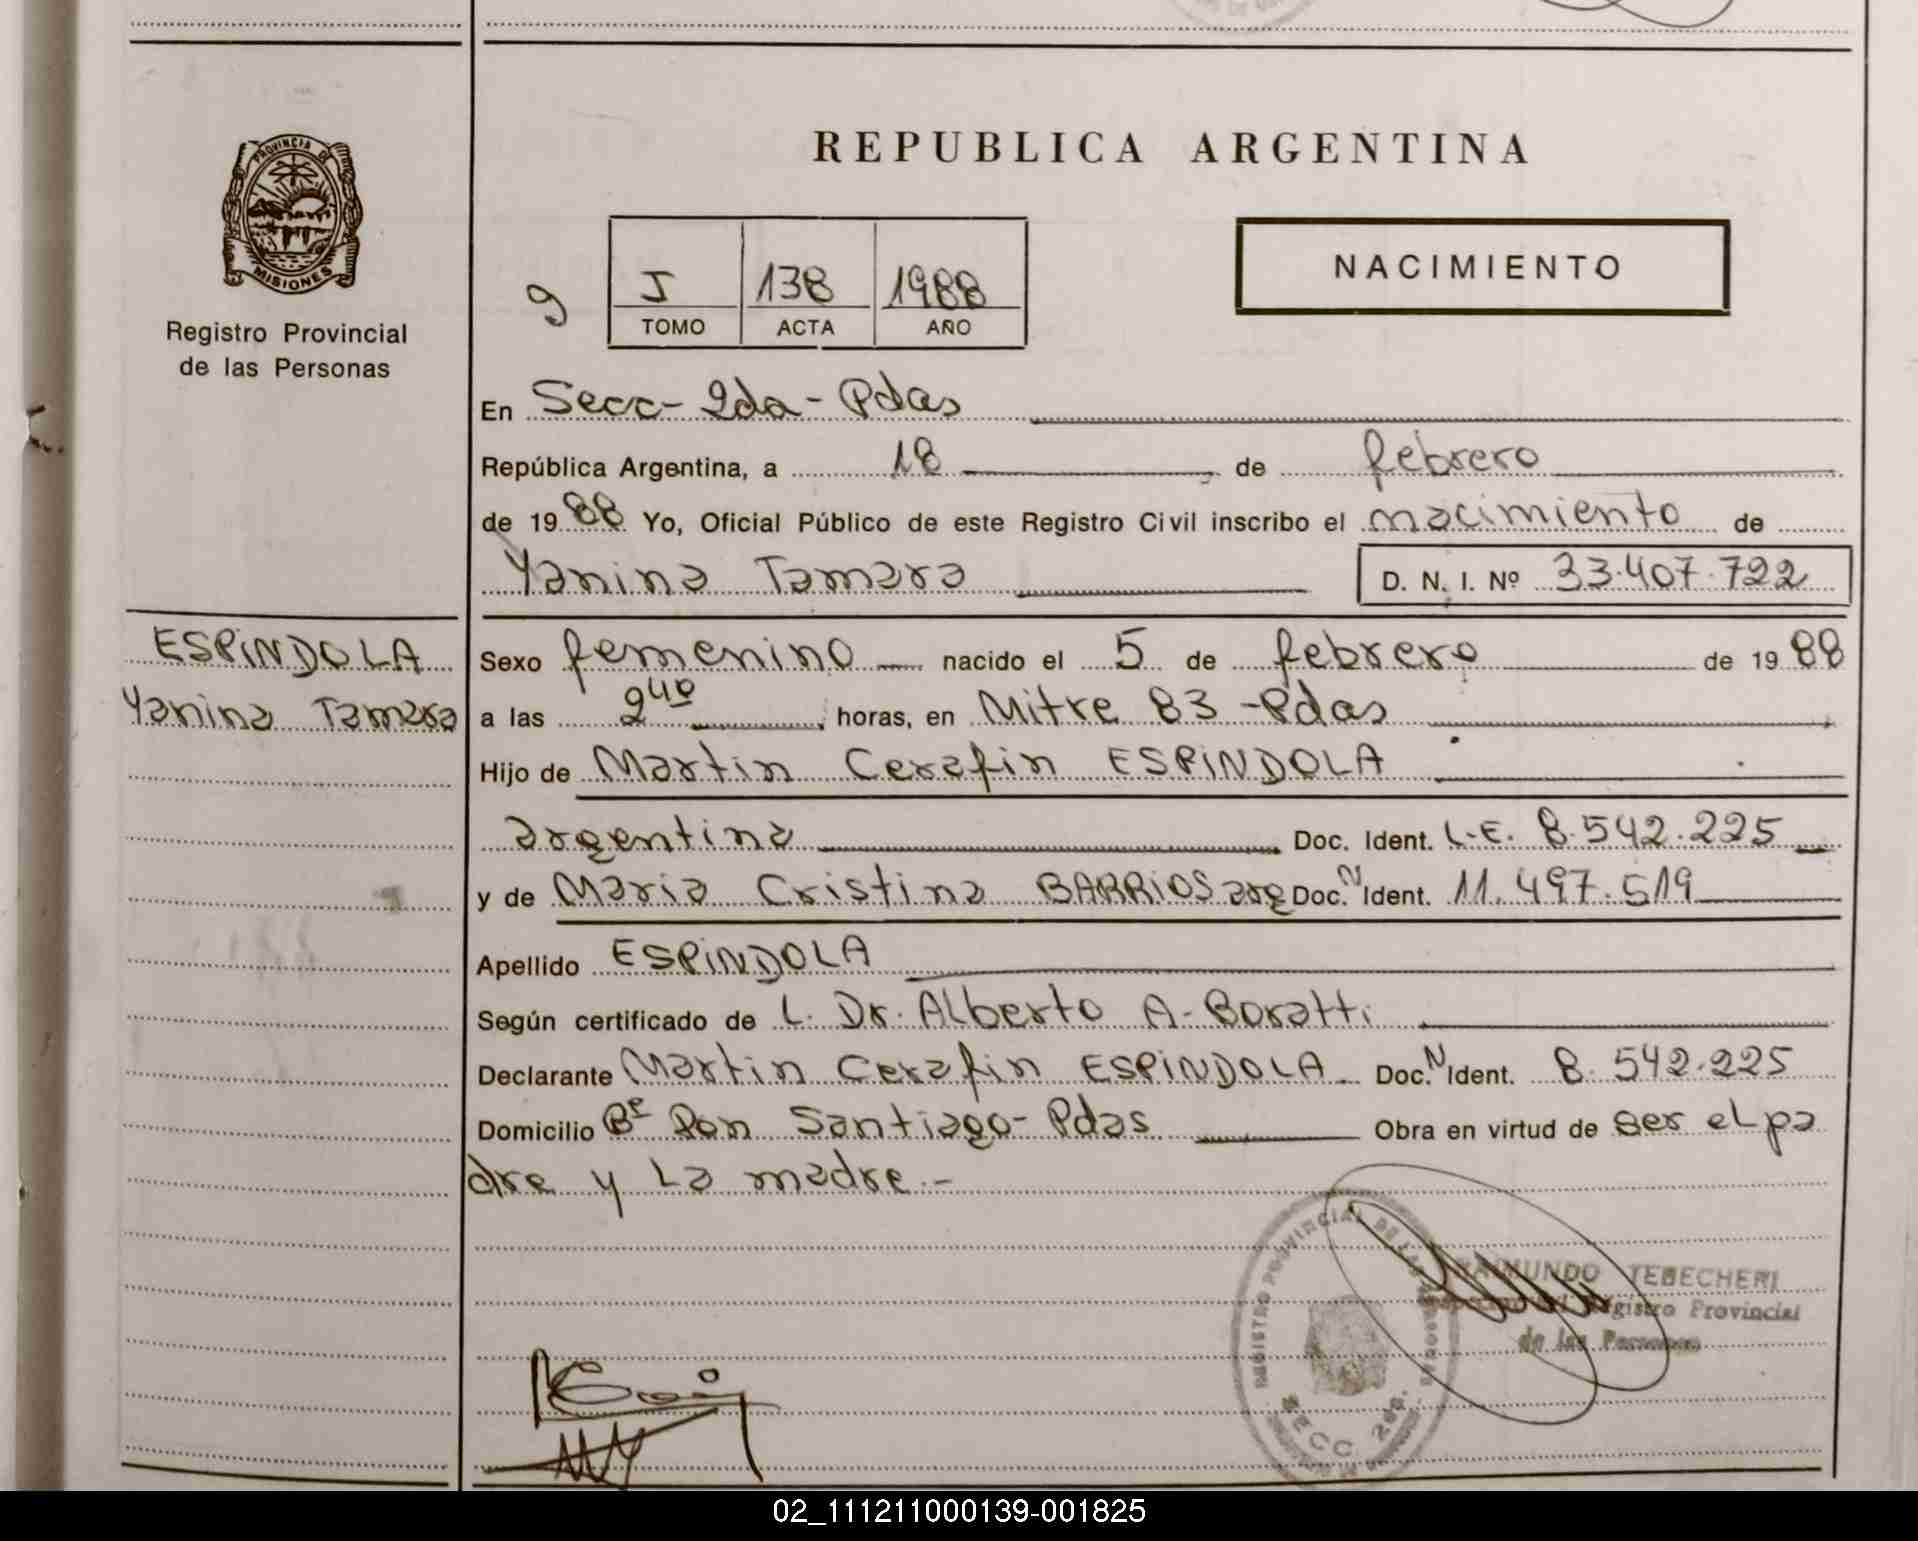 REPUBLICA ARGENTINA
PROVINCIA DE
MISIONES
Registro Provincial
de las Personas
9
J 138 1988
TOMO ACTA AÑO
NACIMIENTO
En Secc- 2da- Pdas
República Argentina, a 18 de febrero
de 1988 Yo, Oficial Público de este Registro Civil inscribo el nacimiento de
Yanina Tamara D. N. I. Nº 33.407.722
ESPINDOLA
Yanina Tamara
Sexo femenino nacido el 5 de febrero de 1988
a las 2⁴⁰ horas, en Mitre 83 -Pdas
Hijo de Martin Cerafin ESPINDOLA
argentina Doc. Ident. L.E. 8.542.225
y de Maria Cristina BARRIOS arg Doc. N Ident. 11.497.519
Apellido ESPINDOLA
Según certificado de L. Dr. Alberto A. Boratti
Declarante Martin Cerafin ESPINDOLA Doc. N Ident. 8.542.225
Domicilio Bº Don Santiago- Pdas Obra en virtud de ser el pa
dre y La madre.-
REGISTRO PROVINCIAL DE LAS PERSONAS
SECC. 2da.
RAIMUNDO TEBECHERI
Registro Provincial
de las Personas
02_111211000139-001825